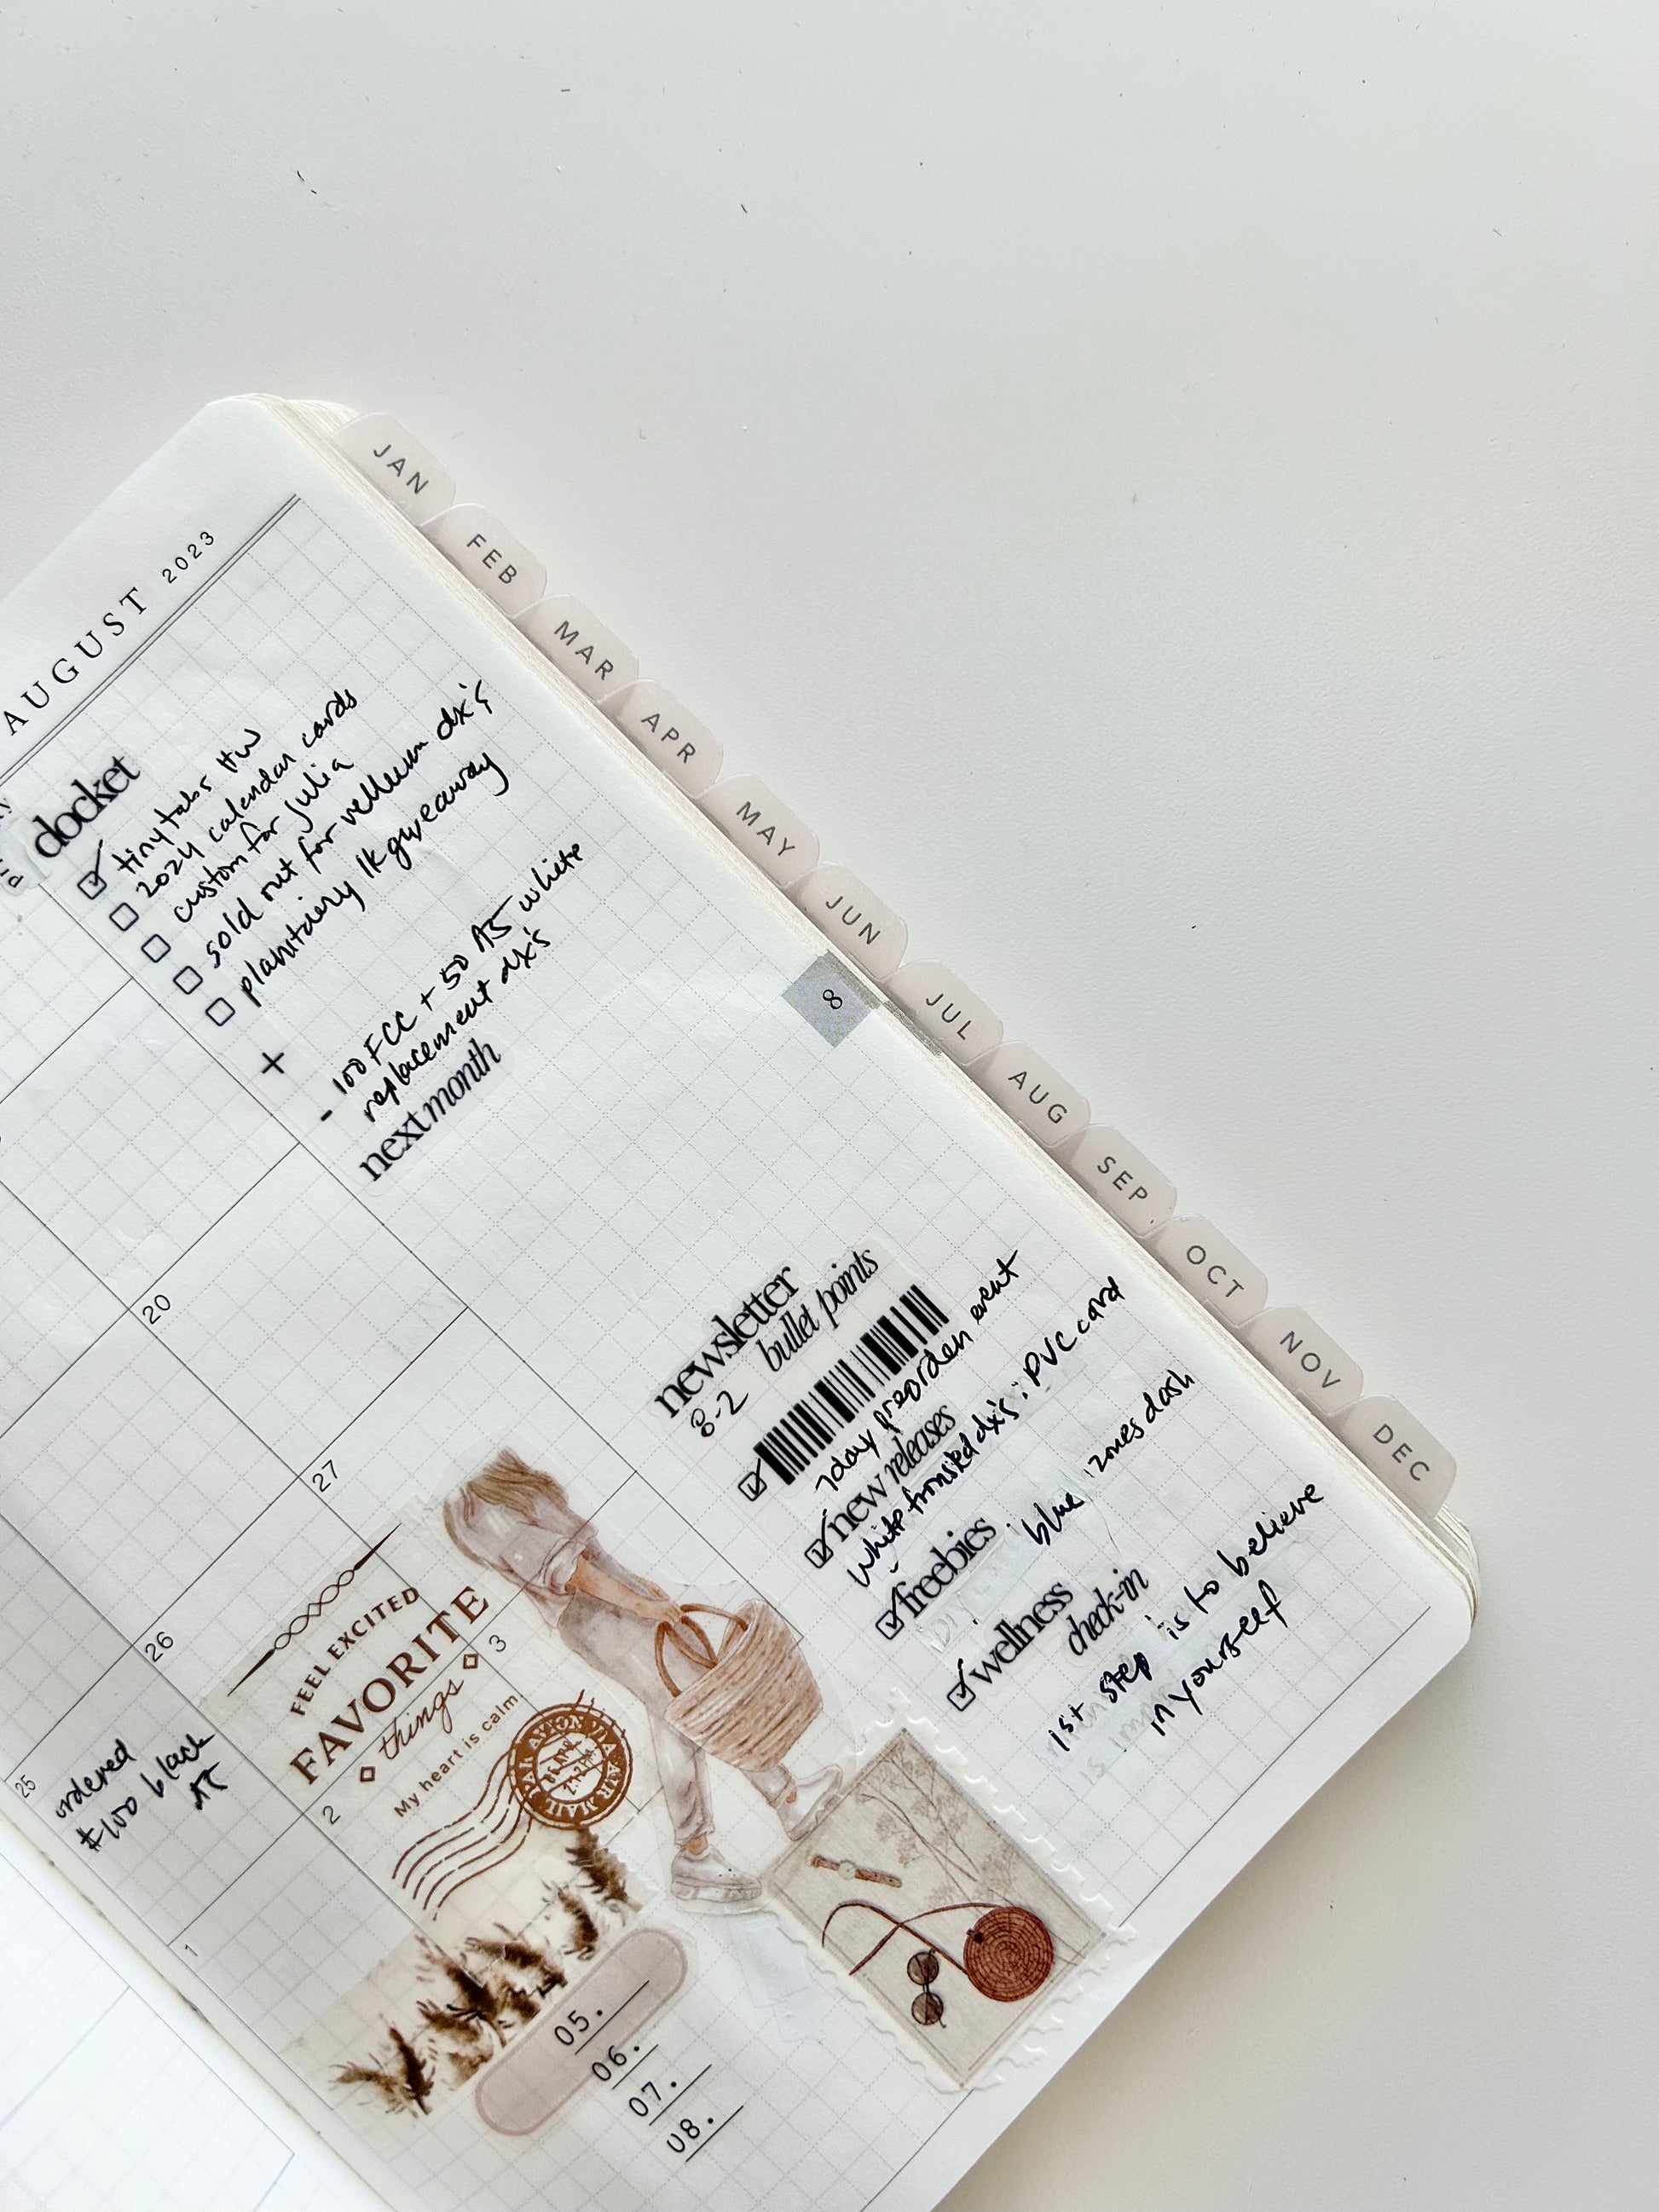 AUGUST 2023
docket
tiny tabs HW
2024 calendar cards
custom for Julia
sold out for vellum dx's
planitairy 1k giveaway
+
- 100 FCC + 50 A5 white
replacement dx's
next month
8
JAN
FEB
MAR
APR
MAY
JUN
JUL
AUG
SEP
OCT
NOV
DEC
newsletter
8-2 bullet points
7 day preorder event
new releases
white dx's : PVC card
freebies : blue zones dash
wellness
check-in
1st step is to believe
in yourself
20
27
26
25
ordered
#100 black
FEEL EXCITED
FAVORITE
things
My heart is calm
PAR AVION
AIR MAIL
3
2
1
05.
06.
07.
08.